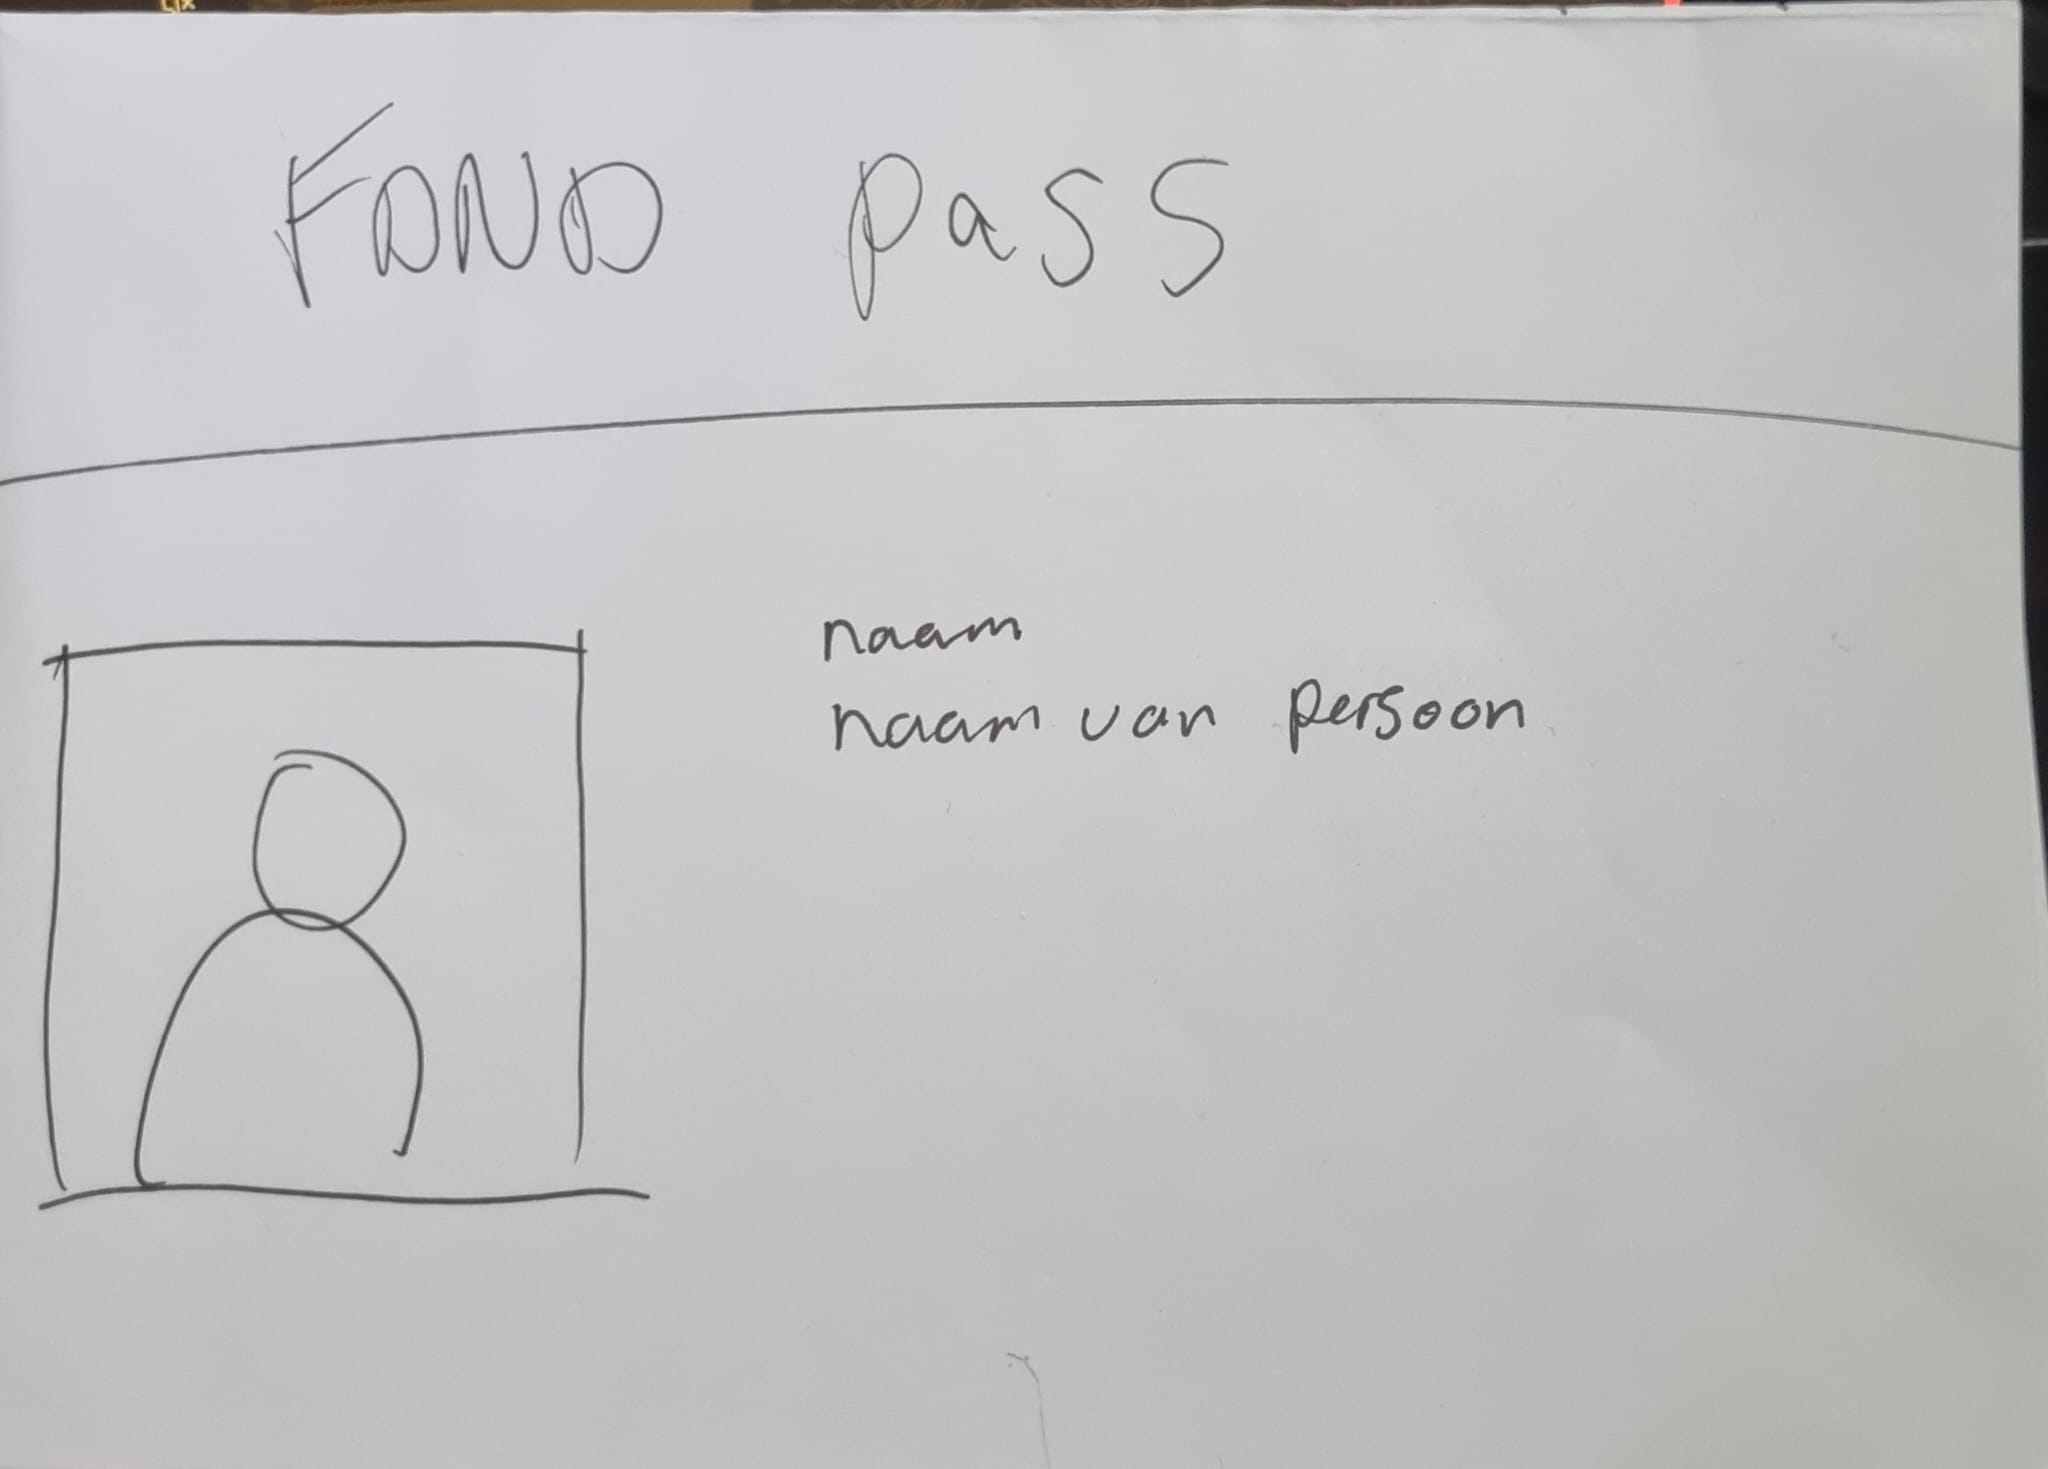 FOND pass
naam
naam van persoon